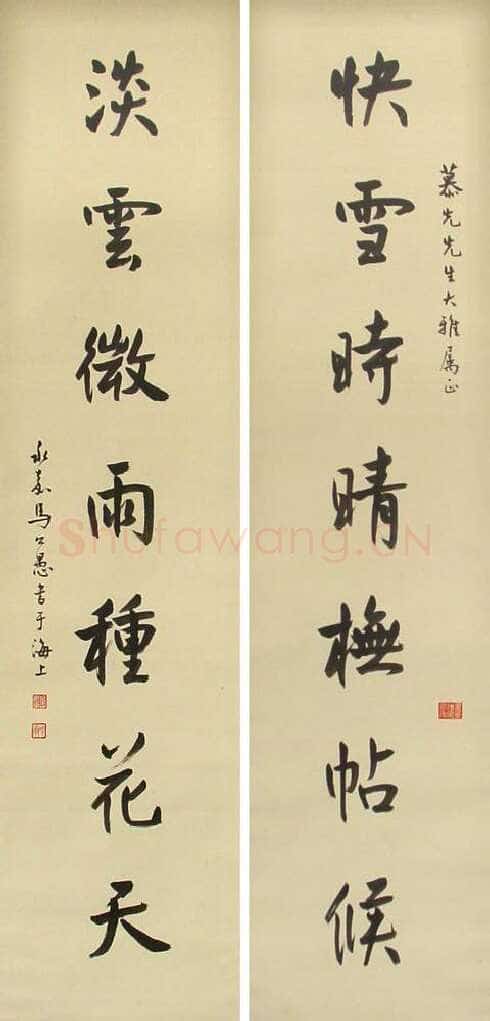 慕先先生大雅属正
快雪時晴橅帖候
淡雲微雨種花天
永嘉馬公愚書于海上
Shufawang.CN